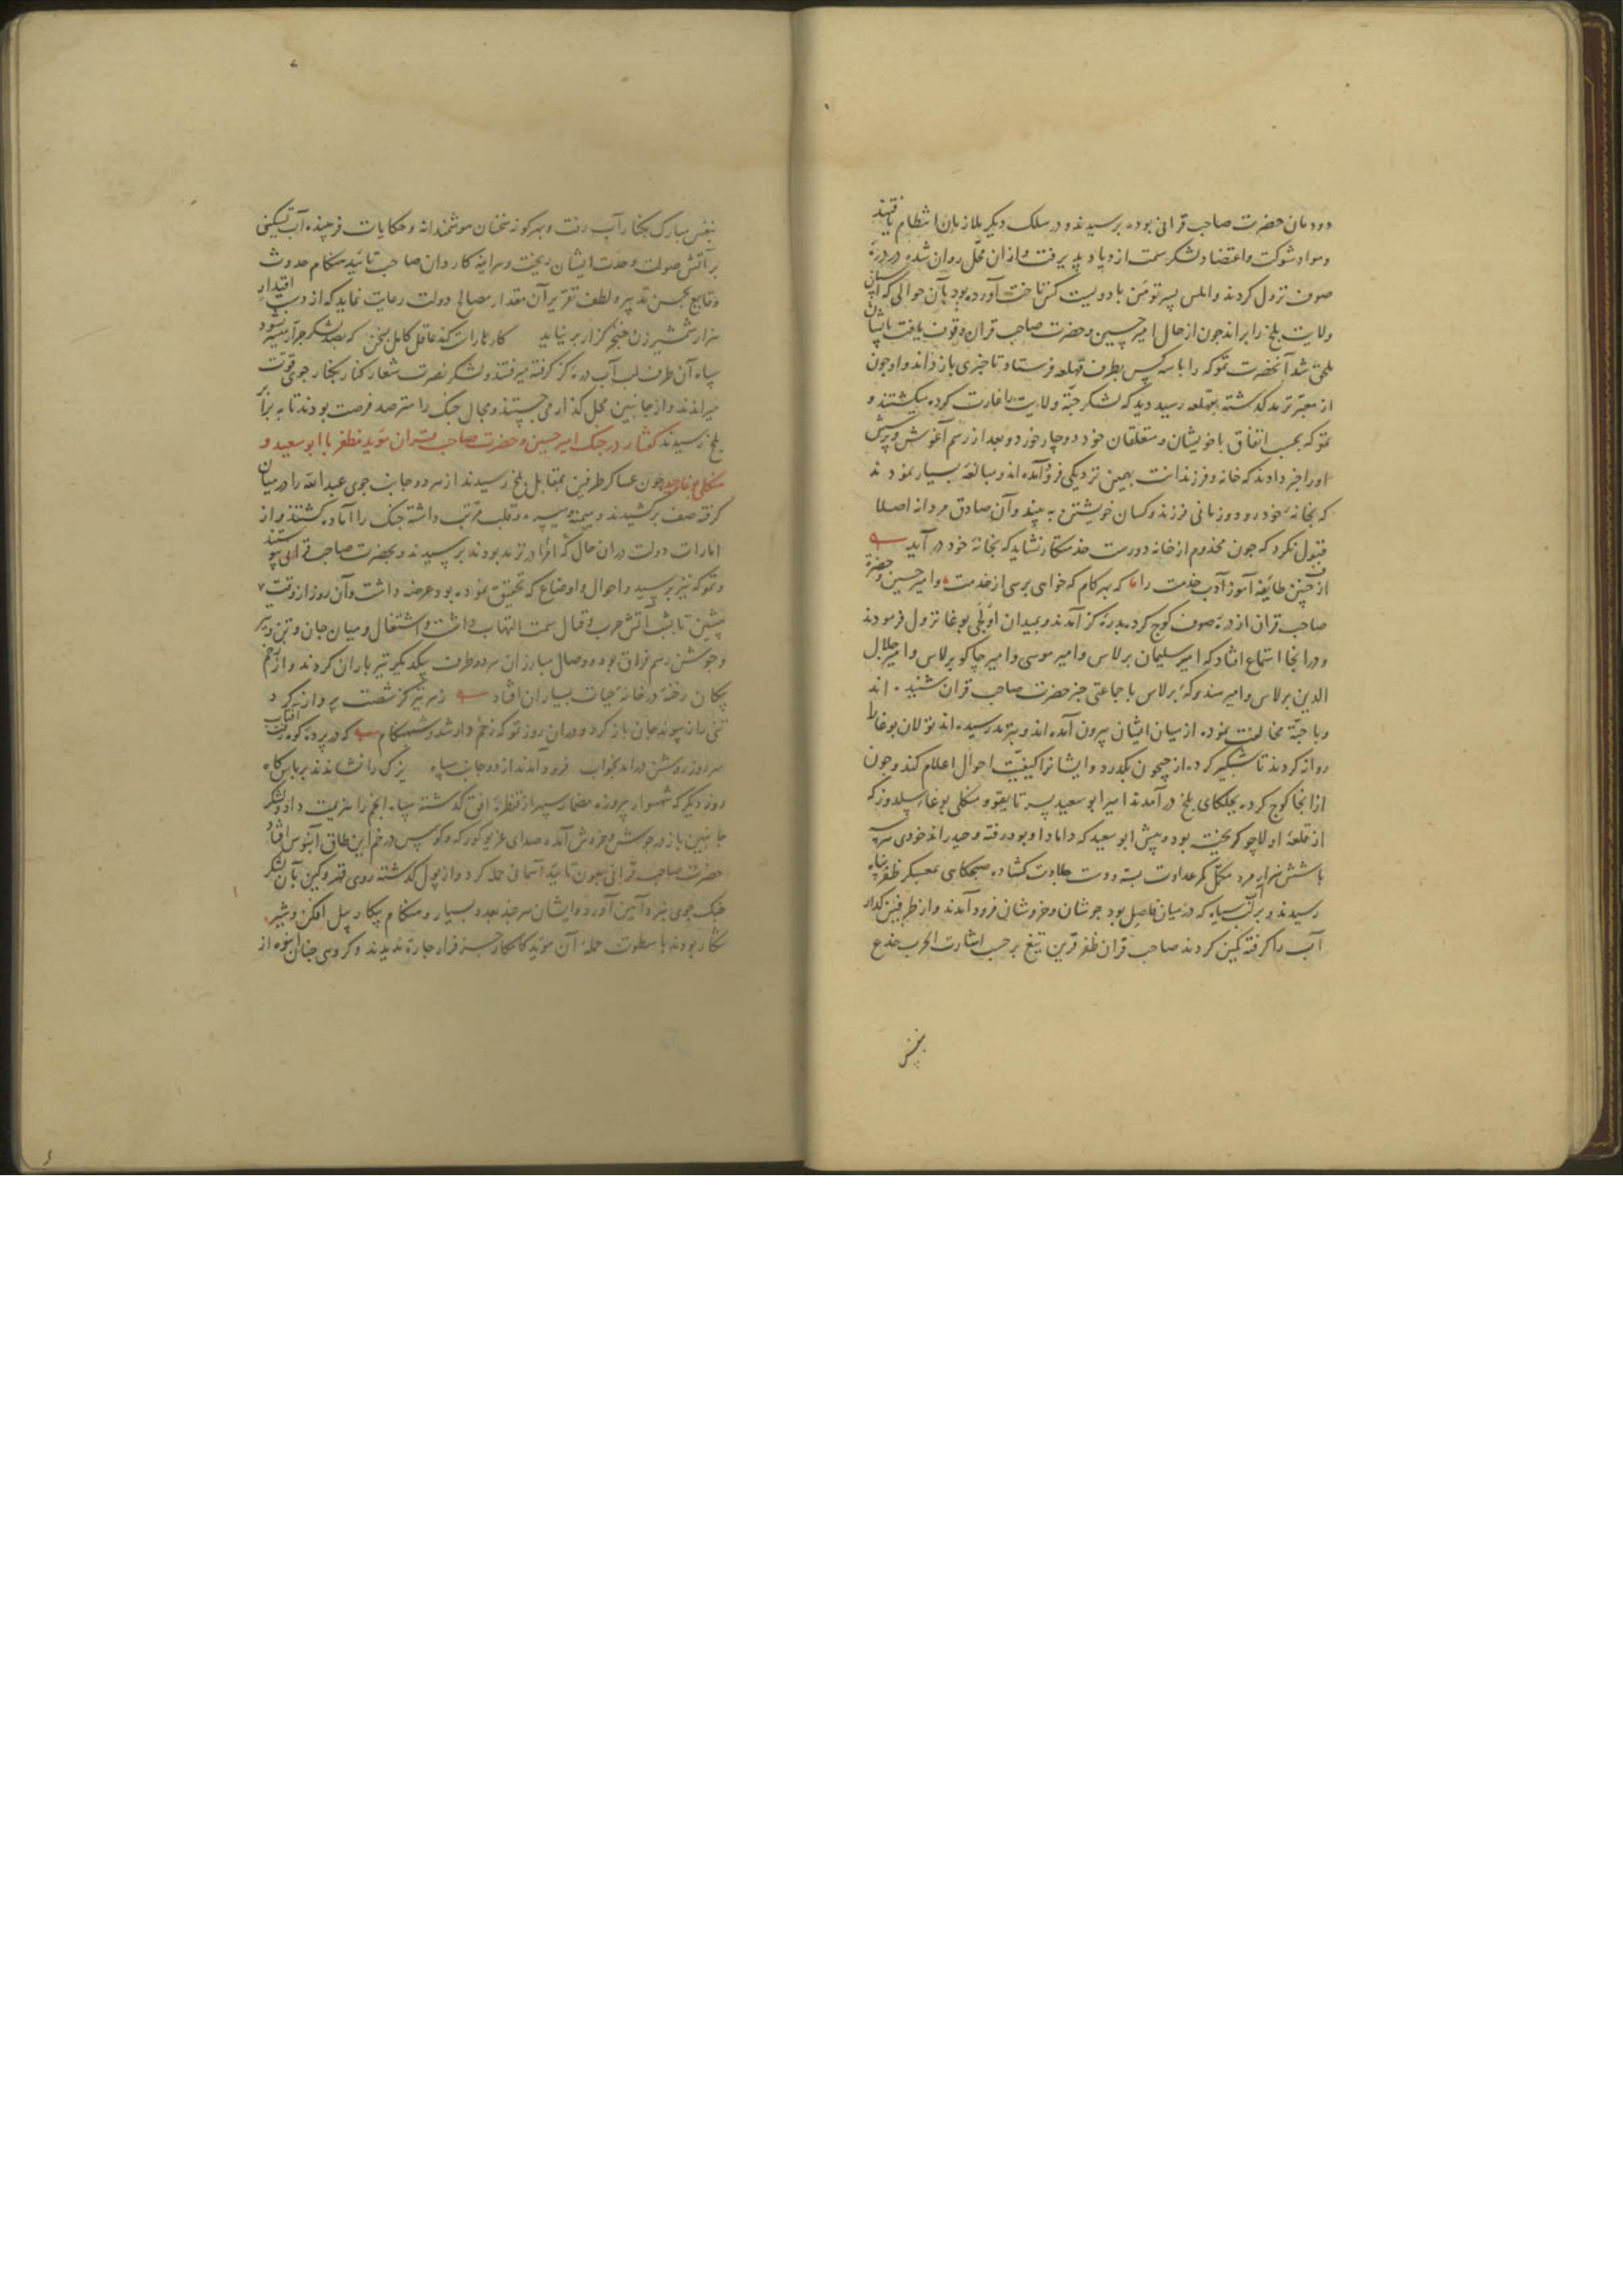 دودمان حضرت صاحب قرانی بوده برسیدند و در سلک دیکر ملازمان انتظام یافتند
و مواد شوکت و اعتضاد لشکر سمت ازدیاد پذیرفت و از ان محل روان شده در دره
صوف نزول کردند و ایلس پسر تومن با دویست کس تاخت آورده بود بآن حوالی که
ولایت بلخ را براند جون از حال امیر حسین و حضرت صاحب قران وقوف یافت بایشان
ملحق شد آنحضرت تموکه را با سه کس بطرف قهلعه فرستاد تا خبری باز داند و او جون
از معبر ترمد کذشته بقهلعه رسید دید که لشکر جته ولایت را غارت کرده میکشتند و
تموکه بحسب اتفاق با خویشان و متعلقان خود دوچار خورد و بعد از رسم آغوش و پرسش
او را خبر دادند که خانه و فرزندانت بهمین نزدیکی فرود آمده اند و مبالغه بسیار نمودند
که بخانه خود رو و زمانی فرزند و کسان خویشتن به بیند و آن صادق مردانه اصلا
قبول نکرد که جون مخدوم از خانه دورست خدمتکار نشاید که بخانه خود در آید
از جنین طایفه آموز آدب خدمت را که بهر کام که خواهی برسی از خدمت و امیر حسین و حضرت
صاحب قران از دره صوف کوج کرده بدره کز آمدند و بمیدان اولجی بوغا نزول فرمودند
و در انجا استماع افتاد که امیر سلیمان برلاس و امیر موسی و امیر جاکو برلاس و امیر جلال
الدین برلاس و امیر هندوکه برلاس با جماعتی خبر حضرت صاحب قران شنیده اند
و با جته مخالفت نموده از میان ایشان بیرون آمده اند و بترمد رسیده اند تولان بوغا را
روانه کردند تا شبکیر کرده از جیحون بکدرد و ایشانرا کیفیت احوال اعلام کند و جون
از انجا کوج کرده بجلکای بلخ در آمدند امیر ابو سعید پسر تایقو و منکلی بوغاء سلدوز که
از قلعه اولاجو کریخته بود و پیش ابو سعید که داماد او بود رفته و حیدر اندخودی
با شش هزار مرد مکمل کمر عداوت بسته و دست جلادت کشاده صبحکاهی بمعسکر ظفر پناه
رسیدند و بر آب سیاه که در میان فاصل بود جوشان و خروشان فرود آمدند و از طرفین کدار
آب را کرفته کمین کردند صاحب قران ظفر قرین تیغ بر حسب اشارت الحرب خدع
بنفس
بنفس مبارک بکنار آب رفت و بهر کونه سخنان هوشمندانه و حکایات فریبنده آب تسکینی
بر آتش صولت و حدت ایشان ریخت و هر اینه کاردان صاحب تائید هنکام حدوث
وقایع بحسن تدبیر و لطف تقریر آن مقدار مصالح دولت رعایت نماید که از دست اقتدار
هزار شمشیر زن خنجر کزار بر نیاید کارها راست کند عاقل کامل بسخن که بصد لشکر جرار میسر نشود
سپاه آن طرف لب آب دره کز کرفته میرفتند و لشکر نصرت شعار کنار بکنار جوی قوت
میراندند و از جانبین محل کذار می جستند و مجال جنک را مترصد فرصت بودند تا به برابر
بلخ رسیدند کفتار در جنک امیر حسین و حضرت صاحب قران مؤید مظفر با ابو سعید و
منکلی بوغا و حیدر جون عساکر طرفین بمقابل بلخ رسیدند از هر دو جانب جوی عبد الله را در میان
کرفته صف برکشیدند و میمنه و میسره و قلب مرتب داشته جنک را آماده کشتند و از
امارات دولت در ان حال که امرا در ترمد بودند برسیدند و بحضرت صاحب قرانی پیوستند
و تموکه نیز برسید و احوال و اوضاع که تحقیق نموده بود عرضه داشت و آن روز از وقت
پیشین تا بشب آتش حرب و قتال سمت التهاب داشت و اشتغال و میان جان و تن و تیر
و جوشن رسم فراق بود و وصال مبارزان هر دو طرف یکدیکر تیر باران کردند و از زخم
پیکان رخنه در خانه حیات بسیاران افتاد ز هر تیر کز شصت پرواز کرد
تنی را ز پیوند جان باز کرد و در ان روز تموکه زخم دار شد و شبهنکام که در پرده کوه رفت آفتاب
سر روز روشن در امد بخواب فرود آمدند از دو جانب سپاه یزک را نشاندند بر پاس کاه
روز دیکر که شهسوار پیروزه مضمار سپهر از قنطره افق کذشته سپاه انجم را هزیمت داد و لشکر
جانبین باز در جوش و خروش آمده صدای غریو کورکه و کوس در خم این طاق آبنوس افتاد
حضرت صاحب قرانی بعون تایید آسمانی حمله کرد و از پول کذشته روی قهر و کین بآن لشکر
جنک جوی نبرد آیین آورد و ایشان هر جند بعدد بسیار و هنکام پیکار پیل افکن و شیر
شکار بودند با سطوت حمله آن مؤید کامکار جز فرار جاره ندیدند و کروهی جنان انبوه از